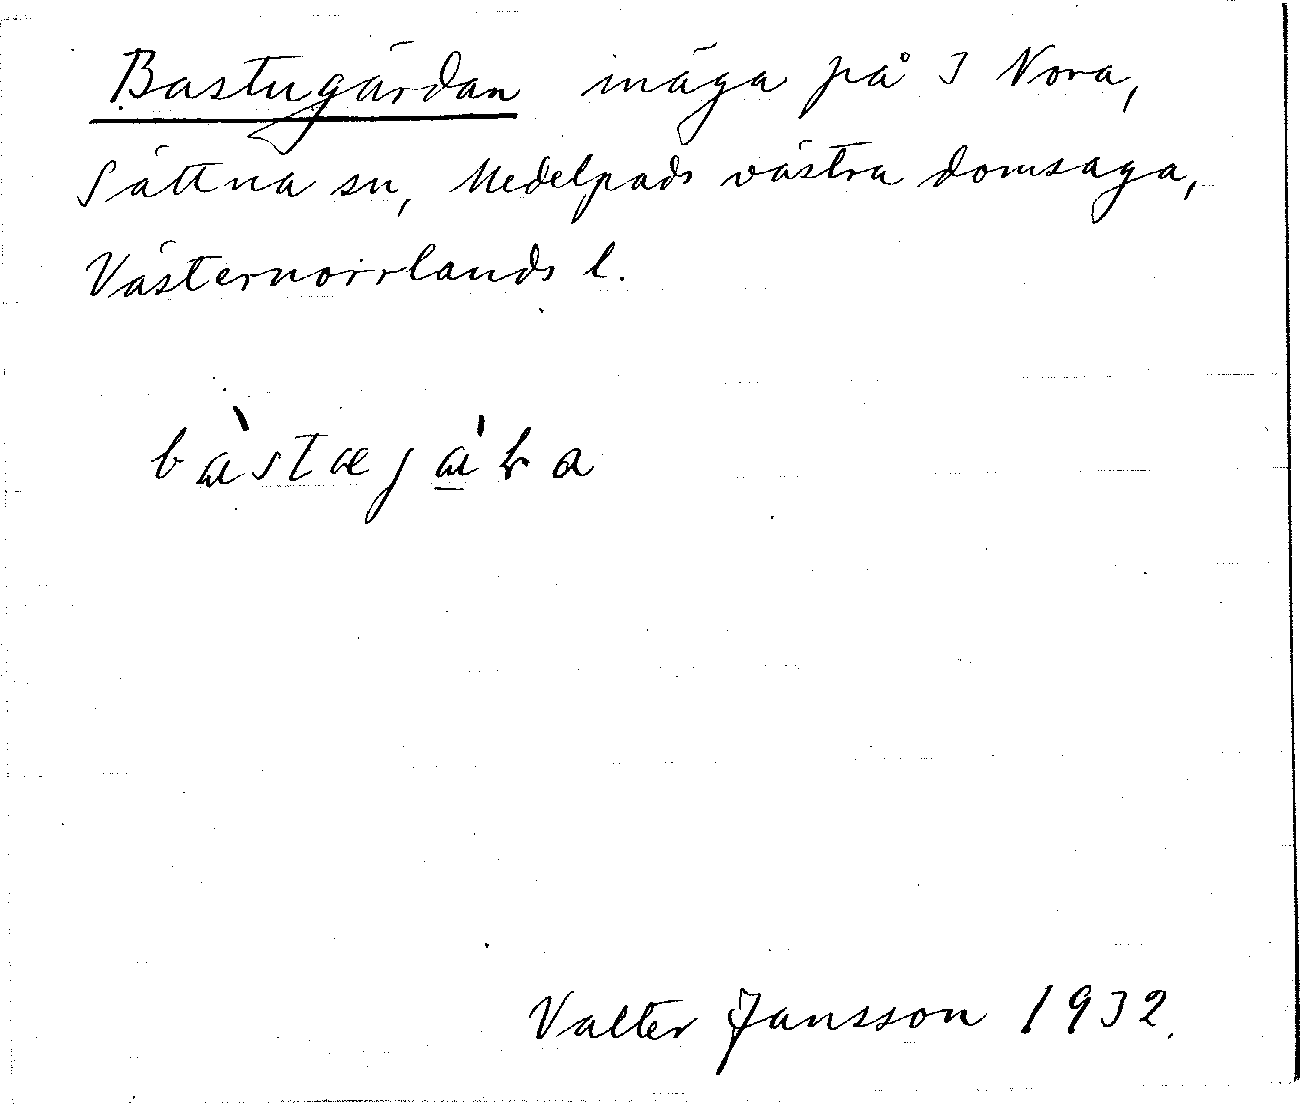 Bastugärdan inäga på 3 Nora,
Sättna sn, Medelpads västra domsaga,
Västernorrlands l.
Valter Jansson 1932.